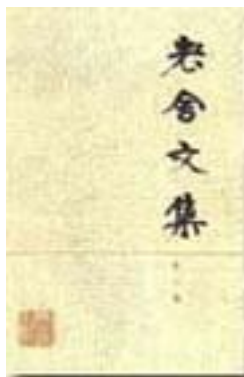 老舍文集